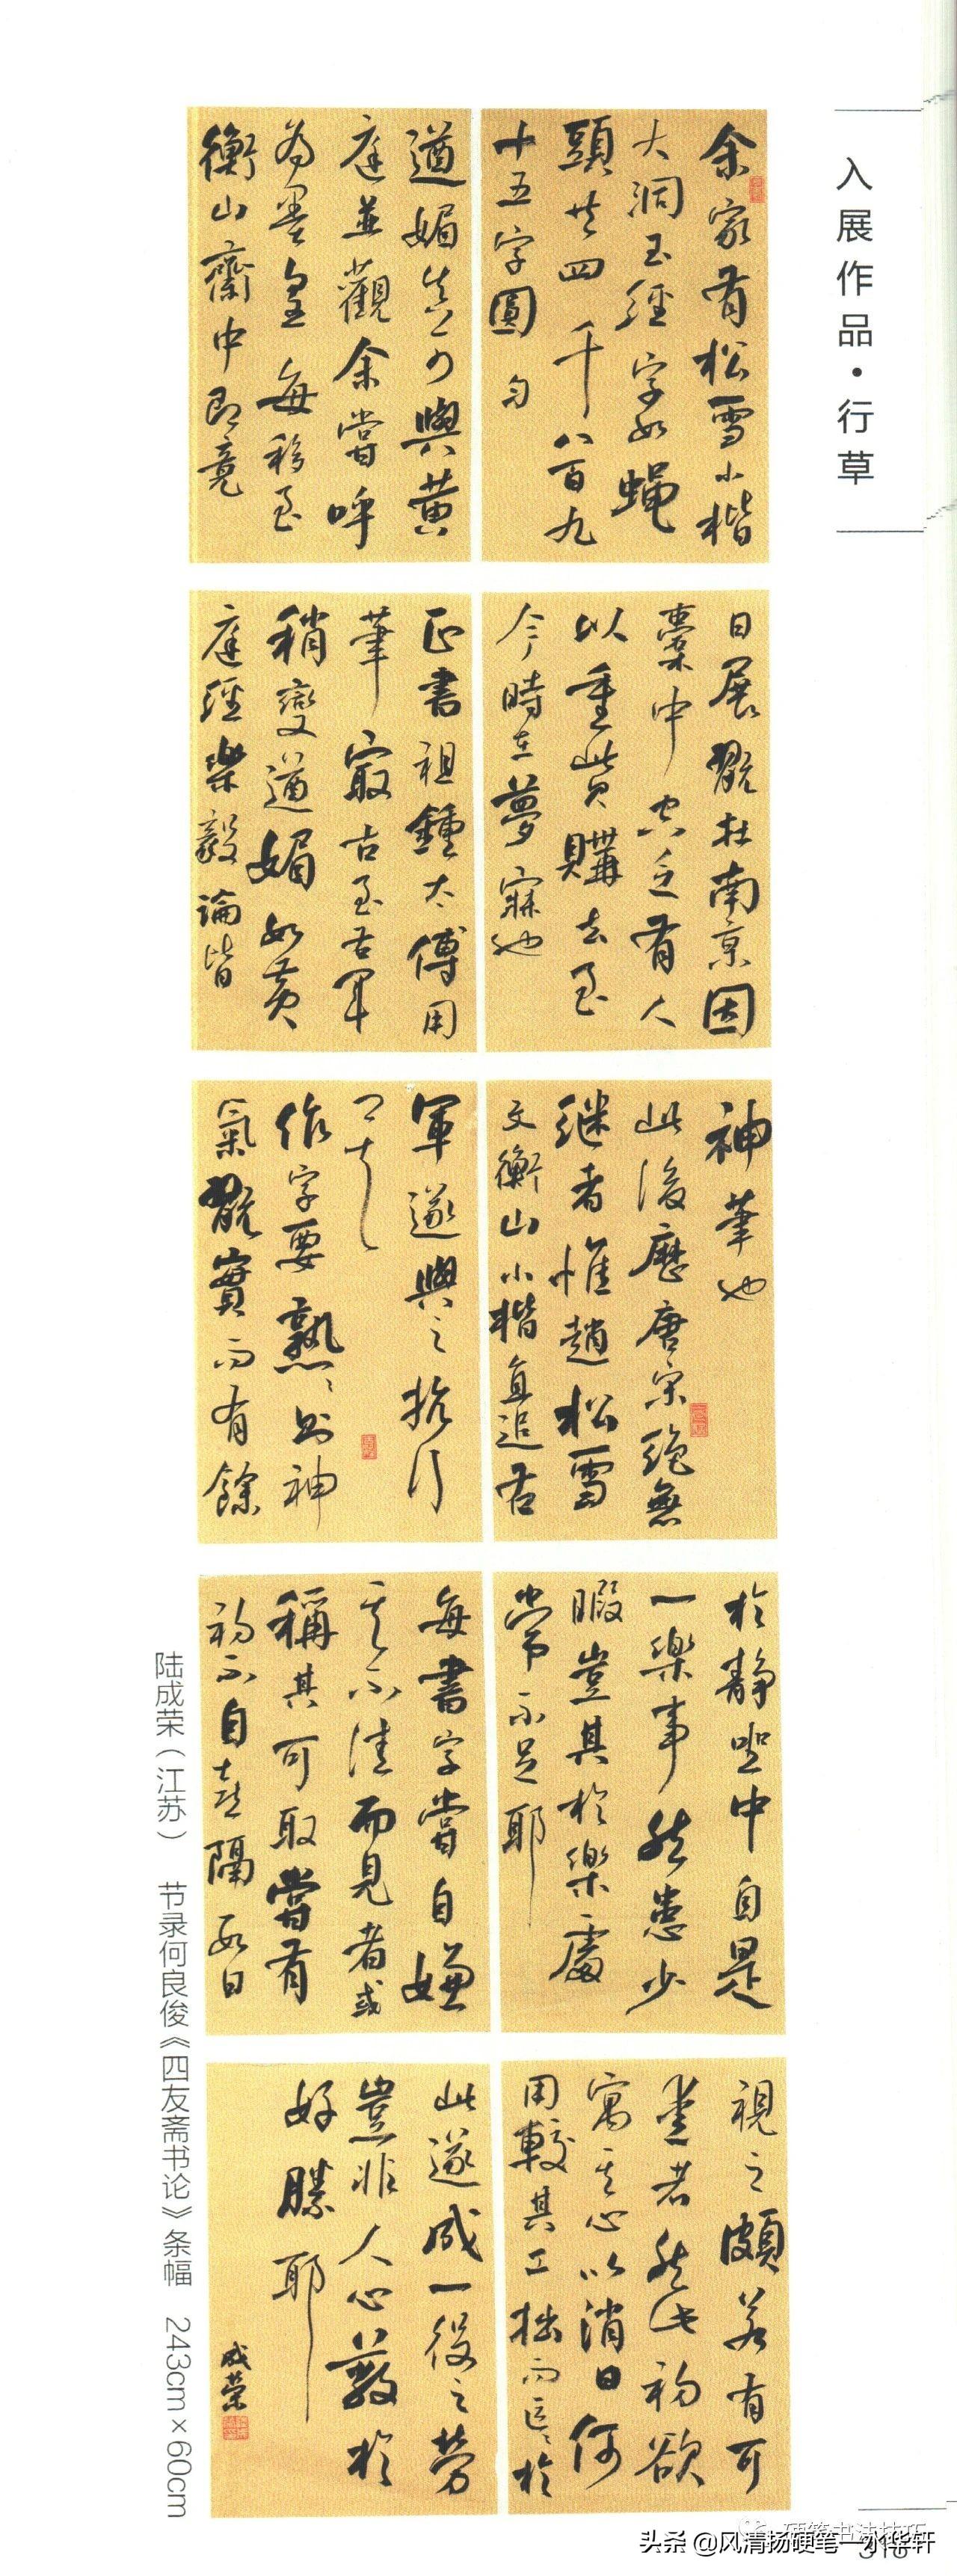 入展作品·行草
余家有松雪小楷
大洞玉經字如蠅
頭共四千八百九
十五字圓勻
遒媚真可與黃
庭並觀余嘗呼
為墨皇每移至
衡山齋中即竟
日展翫在南京因
橐中空乏有人
以重貲購去至
今時在夢寐也
正書祖鍾太傅用
筆最古至右軍
稍變遒媚如黃
庭經樂毅論皆
神筆也
此後歷唐宋絕無
继者惟趙松雪
文衡山小楷直追右
軍遂與之抗行
作字要熟〻則神
氣翫實而有餘
於靜坐中自是
一樂事然患少
暇豈其於樂處
常不足耶
每書字嘗自嫌
其不佳而見者或
稱其可取嘗有
初不自喜隔數日
視之頗若有可
愛者然此初欲
寓其心以消日何
用較其工拙而區〻於
此遂成一役之勞
豈非人心蔽於
好勝耶
成榮
陆成荣（江苏） 节录何良俊《四友斋书论》条幅 243cm×60cm
硬笔书法技巧
头条 @风清扬硬笔—水华轩